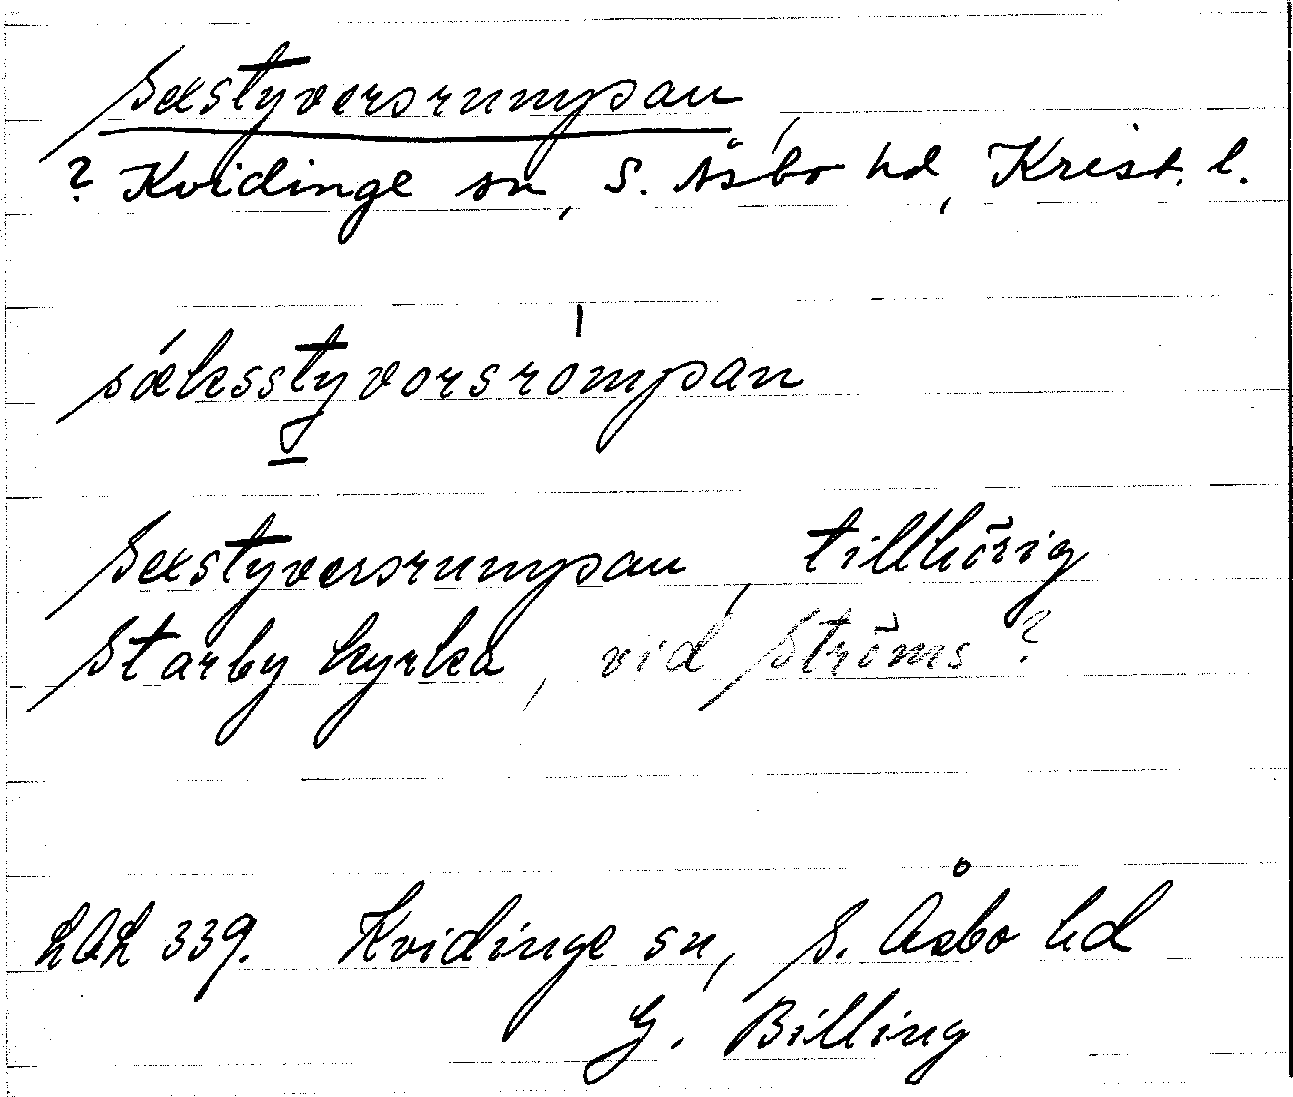 Sexstyversrumpan
? Kvidinge sn, S. Åsbo hd, Krist. l.
sæksstyvorsrompan
Sexstyversrumpan, tillhörig
Starby kyrka, vid Ströms?
LAL 339. Kvidinge sn, S. Åsbo hd
G. Billing